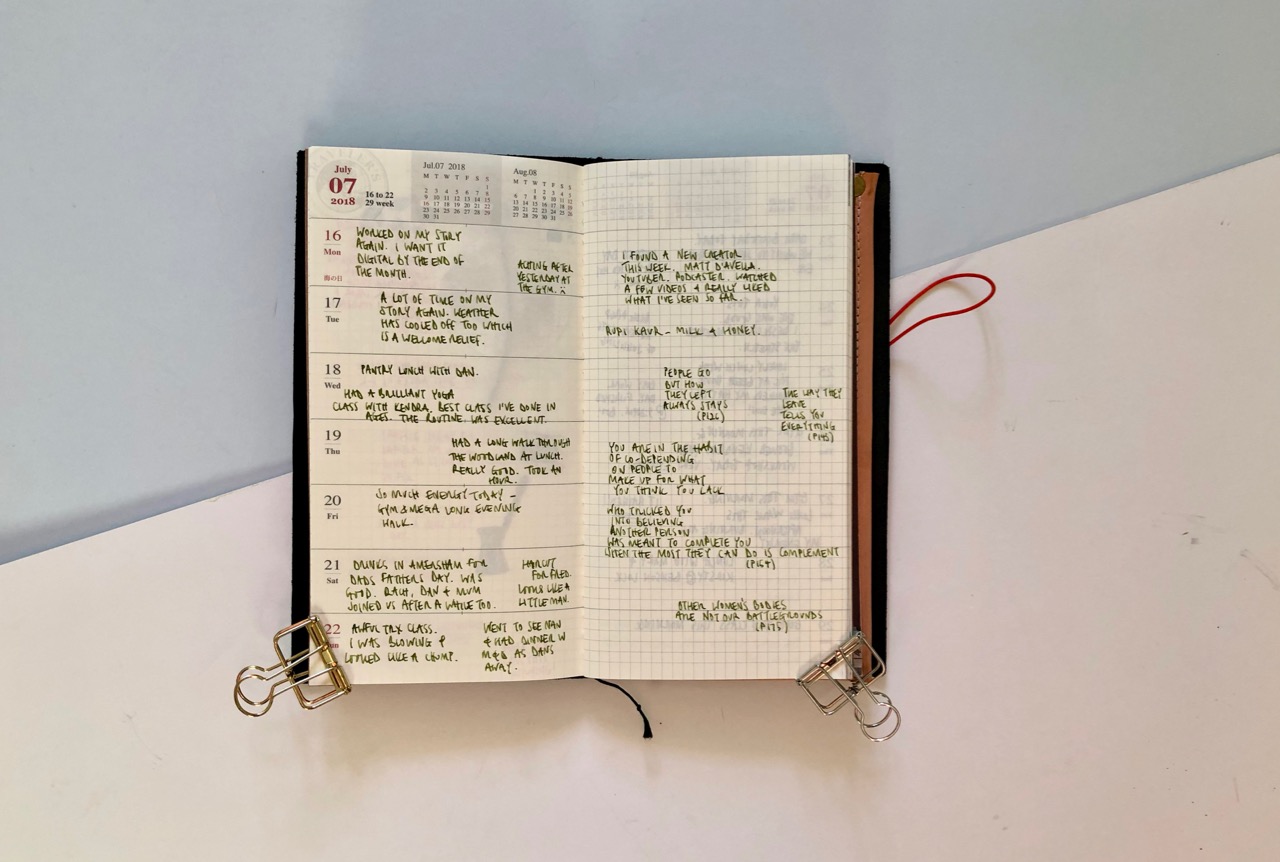 TRAVELER'S
July
07
2018
16 to 22
29 week
Jul.07 2018
M T W T F S S
1
2 3 4 5 6 7 8
9 10 11 12 13 14 15
16 17 18 19 20 21 22
23 24 25 26 27 28 29
30 31
Aug.08
M T W T F S S
1 2 3 4 5
6 7 8 9 10 11 12
13 14 15 16 17 18 19
20 21 22 23 24 25 26
27 28 29 30 31
16
Mon
海の日
WORKED ON MY STORY
AGAIN. I WANT IT
DIGITAL BY THE END OF
THE MONTH.
ACHING AFTER
YESTERDAY AT
THE GYM.
17
Tue
A LOT OF TIME ON MY
STORY AGAIN. WEATHER
HAS COOLED OFF TOO WHICH
IS A WELCOME RELIEF.
18
Wed
PANTRY LUNCH WITH DAN.
HAD A BRILLIANT YOGA
CLASS WITH KENDRA. BEST CLASS I'VE DONE IN
AGES. THE ROUTINE WAS EXCELLENT.
19
Thu
HAD A LONG WALK THROUGH
THE WOODLAND AT LUNCH.
REALLY GOOD. TOOK AN
HOUR.
20
Fri
SO MUCH ENERGY TODAY -
GYM & MEGA LONG EVENING
WALK.
21
Sat
DRINKS IN AMERSHAM FOR
DADS FATHERS DAY. WAS
GOOD. RACH, DAN & MUM
JOINED US AFTER A WHILE TOO.
HAIRCUT
FOR FRED.
LOOKS LIKE A
LITTLE MAN.
22
AWFUL TRX CLASS.
I WAS BLOWING &
LOOKED LIKE A CHUMP.
WENT TO SEE NAN
& HAD DINNER W
M&D AS DANS
AWAY.
I FOUND A NEW CREATOR
THIS WEEK. MATT D'AVELLA.
YOUTUBER. PODCASTER. WATCHED
A FEW VIDEOS & REALLY LIKED
WHAT I'VE SEEN SO FAR.
RUPI KAUR - MILK & HONEY.
PEOPLE GO
BUT HOW
THEY LEFT
ALWAYS STAYS
(P126)
THE WAY THEY
LEAVE
TELLS YOU
EVERYTHING
(P145)
YOU ARE IN THE HABIT
OF CO-DEPENDING
ON PEOPLE TO
MAKE UP FOR WHAT
YOU THINK YOU LACK
WHO TRICKED YOU
INTO BELIEVING
ANOTHER PERSON
WAS MEANT TO COMPLETE YOU
WHEN THE MOST THEY CAN DO IS COMPLEMENT
(P154)
OTHER WOMEN'S BODIES
ARE NOT OUR BATTLEGROUNDS
(P175)